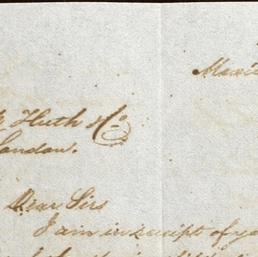 Mexic
Huth & Co
London.
Dear Sirs
I am in receipt of yo